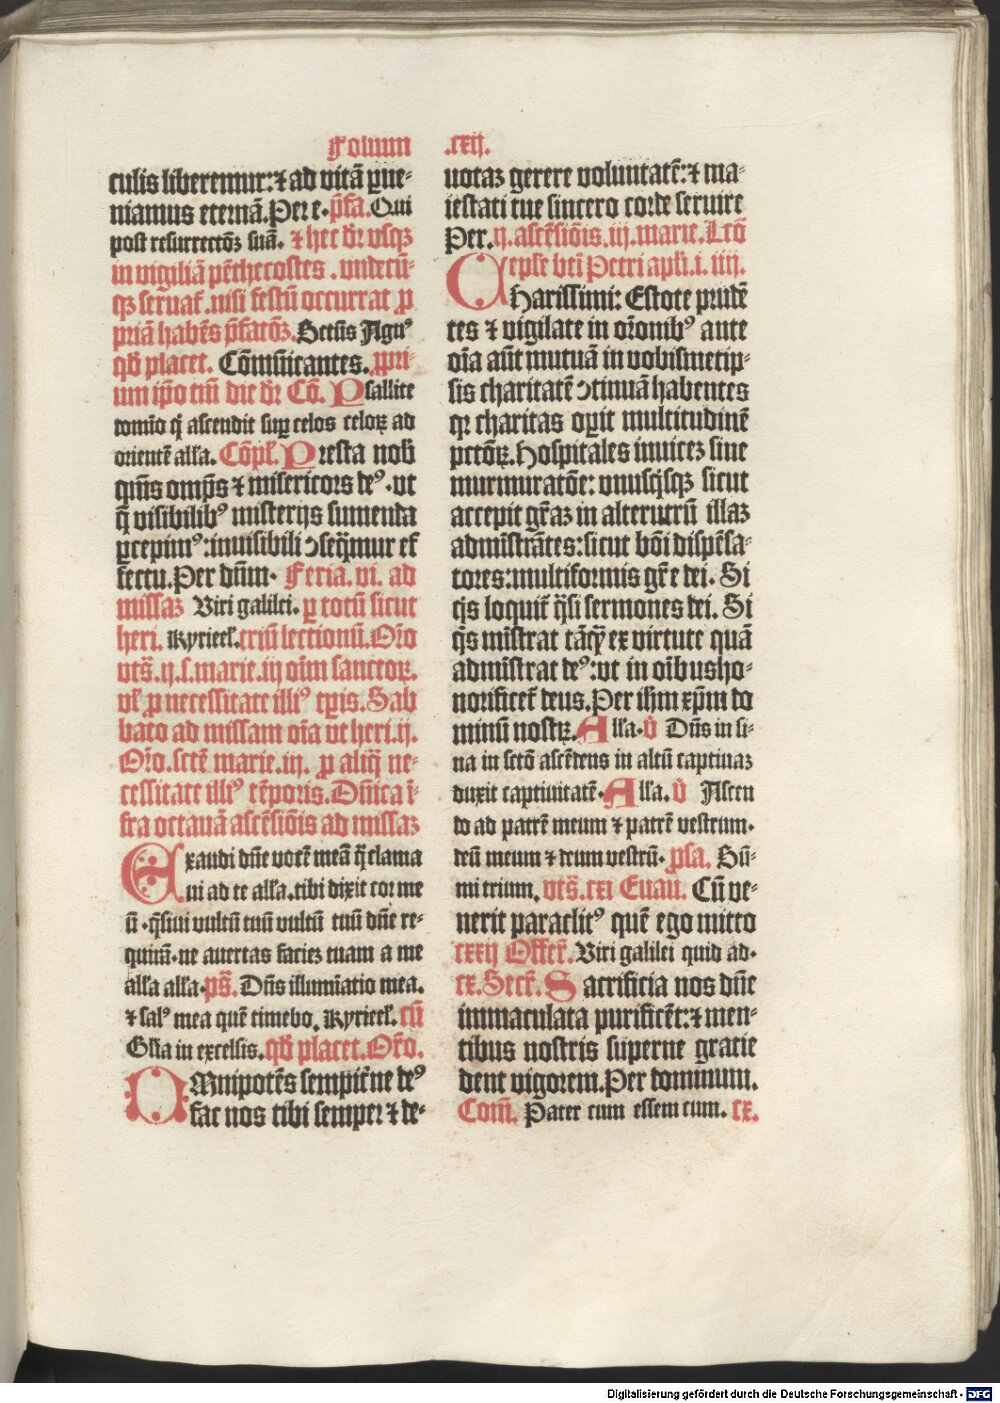 Folium .cxij.
culis liberemur: ⁊ ad vitā ꝑue-
niamus eternā. Per e. p̄fa. Qui
post resurrectōꝫ suā. ⁊ hec dr̄ vsqꝫ
in vigiliā pēthecostes . vndecū-
qꝫ seruat᷑ . nisi festū occurrat ꝓ
priā habēs p̄fatōꝫ. Sctūs Agnꝰ
qd̄ placet. Cōmūicantes. ꝓpri-
um ip̄o tm̄ die dr̄ Cō. Psallite
domīo q̄ ascendit suꝑ celos celoꝝ ad
orientē all̄a. Cōpl̄. Presta nob̄
quīs omp̄s ⁊ misericors deꝰ . vt
q̄ visibilibꝰ misterijs sumenda
ꝑcepimꝰ: inuisibili ɔseq̄mur ef
fectu. Per dn̄m. Feria. vi. ad
missaꝫ Viri galilei. ꝑ totū sicut
heri. Kyrieel̄. triū lectionū. Oro
vts̄. ij. s. marie. iij oīm sanctoꝝ.
vl̄ ꝓ necessitate illiꝰ tꝑis. Sab
bato ad missam oīa vt heri. ij.
Oro. scte marie. iij. ꝓ aliq̄ ne-
cessitate illiꝰ tēporis. Dn̄ica ī-
fra octauā ascēsiōis ad missaꝫ
Exaudi dn̄e vocē meā q̄ clama
ui ad te all̄a. tibi dixit cor me
ū . q̄siui vultū tuū vultū tuū dn̄e re-
quirā. ne auertas facieꝫ tuam a me
all̄a all̄a. ps̄. Dn̄s illumīatio mea.
⁊ salꝰ mea quē timebo. Kyrieel̄. cū
Gl̄ia in excelsis. qd̄ placet. Oro.
OMnipotēs sempit̄ne deꝰ
fac nos tibi semper ⁊ de-
uotaꝫ gerere voluntatē: ⁊ ma-
iestati tue sincero corde seruire
Per. ij. ascēsiōis. iij. marie. Lcō
eple bt̄i Petri apl̄i. i. iiij.
CHarissimi: Estote prudē
tes ⁊ vigilate in oīonibꝰ ante
oīa aūt mutuā in vobismetip-
sis charitatē ɔtinuā habentes
qr charitas oꝑit multitudinē
pctōꝝ. Hospitales inuiceꝫ sine
murmuratōe: vnusq̄sqꝫ sicut
accepit gr̄aꝫ in alterutrū illaꝫ
admīstrātes: sicut bōi dispēsa-
tores: multiformis gr̄e dei. Si
q̄s loquit᷑ q̄si sermones dei. Si
q̄s mīstrat tāqꝫ ex virtute quā
admīstrat deꝰ: vt in oībus ho-
norificet᷑ deus. Per ihm xp̄m do
minū nostꝝ. All̄a. v̄ Dn̄s in si-
na in sctō ascēdens in altū captiuaꝫ
duxit captiuitatē. All̄a. v̄ Ascen
do ad patrē meum ⁊ patrē vestrum.
deū meum ⁊ deum vestrū. ꝓsa. Sū-
mi trium. vts̄. cxi Euan. Cū ve-
nerit paraclitꝰ quē ego mitto
cxxij Offer̄. Viri galilei quid ad.
cx. Secr̄. Sacrificia nos dn̄e
immaculata purificēt: ⁊ men-
tibus nostris superne gratie
dent vigorem. Per dominum.
Com̄. Pater cum essem cum. cx.
Digitalisierung gefördert durch die Deutsche Forschungsgemeinschaft - DFG